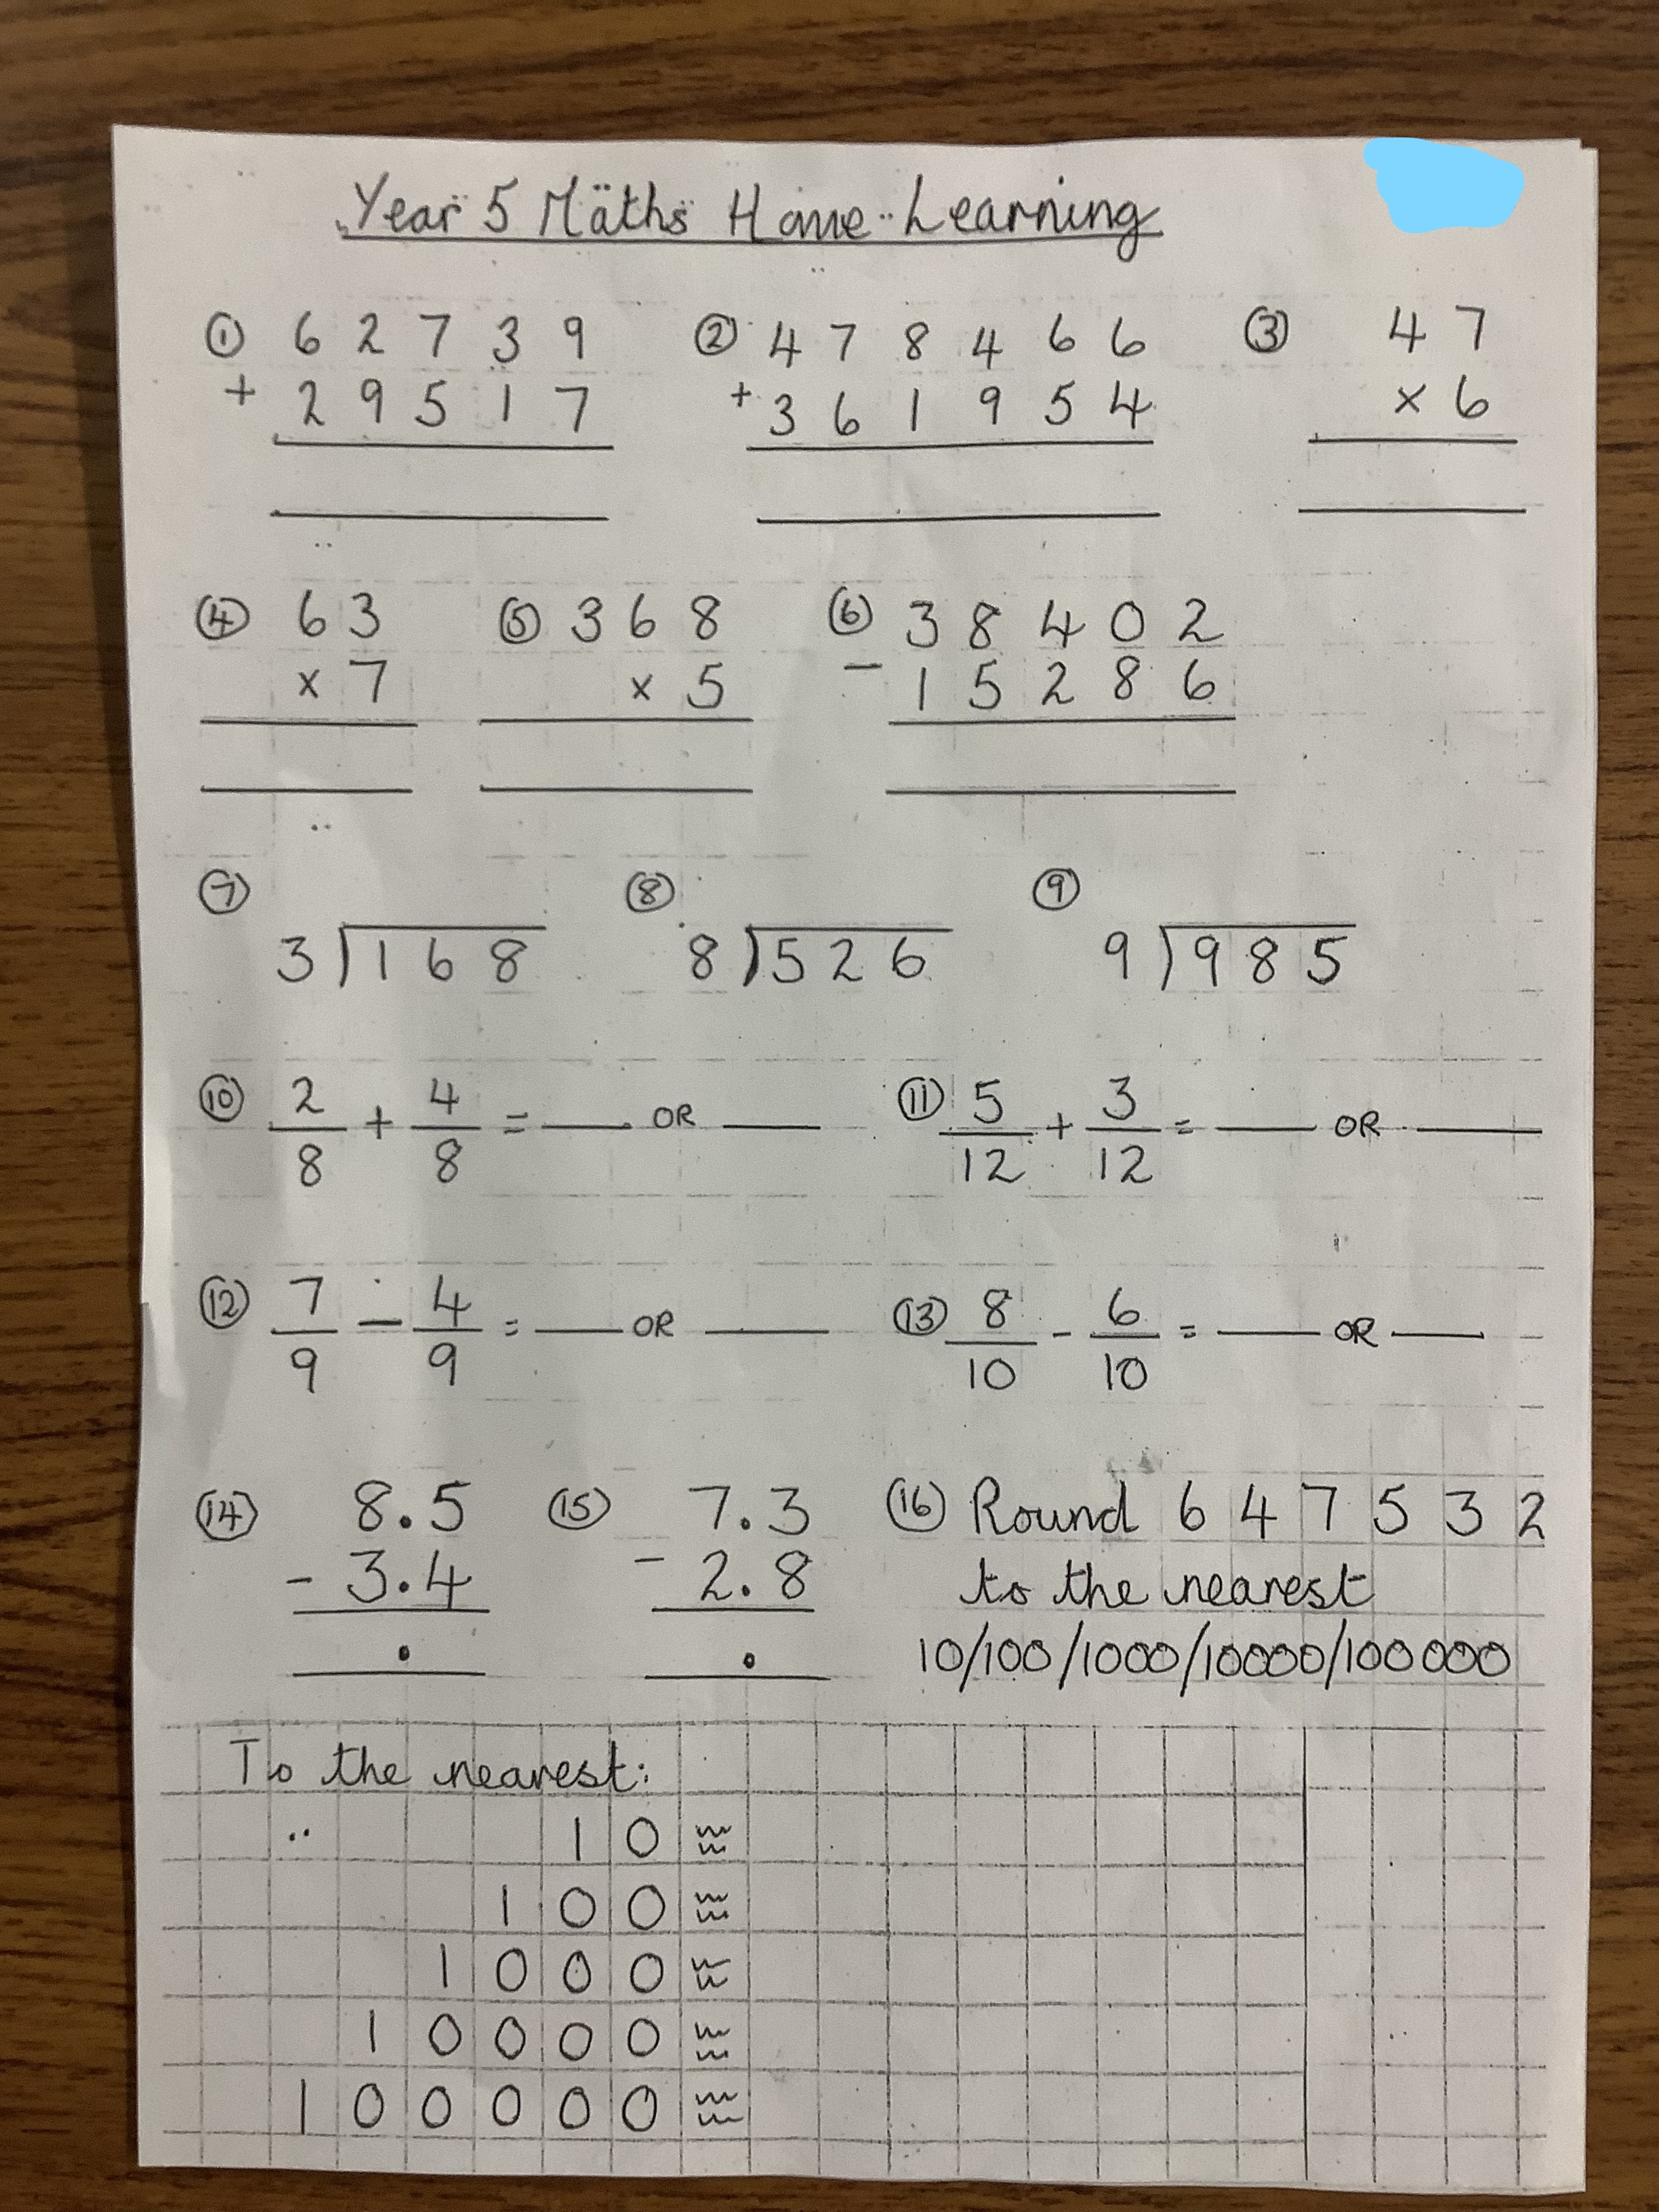 Year 5 Maths Home Learning
① 6 2 7 3 9 ② 4 7 8 4 6 6 ③ 4 7
+ 2 9 5 1 7 + 3 6 1 9 5 4 × 6
④ 6 3 ⑤ 3 6 8 ⑥ 3 8 4 0 2
× 7 × 5 − 1 5 2 8 6
⑦ ⑧ ⑨
3)1 6 8 8)5 2 6 9)9 8 5
⑩ 2/8 + 4/8 = ___ OR ___ ⑪ 5/12 + 3/12 = ___ OR ___
⑫ 7/9 − 4/9 = ___ OR ___ ⑬ 8/10 - 6/10 = ___ OR ___
⑭ 8.5 ⑮ 7.3 ⑯ Round 6 4 7 5 3 2
- 3.4 - 2.8 to the nearest
. . 10/100/1000/10000/100000
To the nearest:
1 0 ≈
1 0 0 ≈
1 0 0 0 ≈
1 0 0 0 0 ≈
1 0 0 0 0 0 ≈